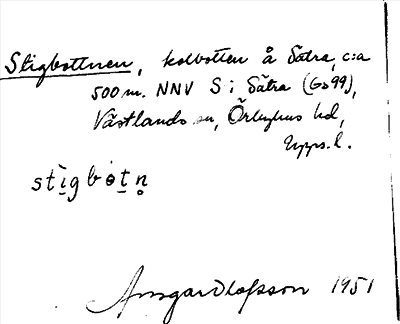 Stigbottnen, kolbotten å Sätra, c:a
500 m. NNV S i Sätra (Gs 99),
Västlands sn, Örbyhus hd,
Upps. l.
stìg bòtn̥
Ansgar Olofsson 1951